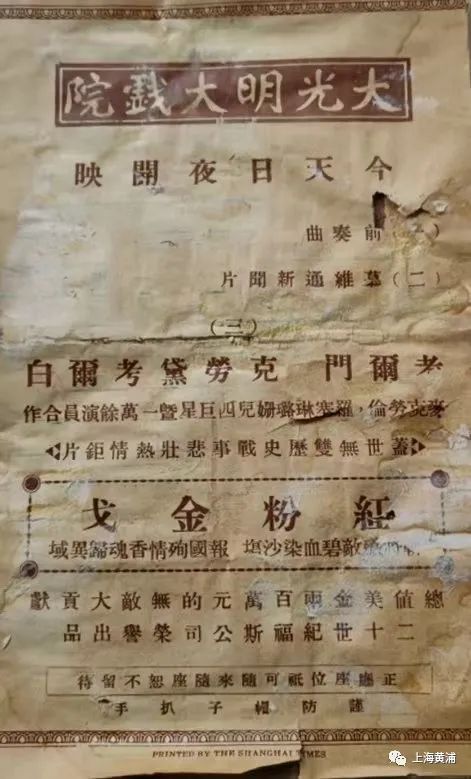 大光明大戲院
今天日夜開映
(一)前奏曲
(二)慕維通新聞片
(三)
考爾門 克勞黛考爾白
麥克勞倫,羅塞琳璐珊兒四巨星暨一萬餘演員合作
蓋世無雙歷史戰事悲壯熱情鉅片
紅粉金戈
敵碧血染沙塲 報國殉情香魂歸異域
總值美金兩百萬元的無敵大貢獻
二十世紀福斯公司榮譽出品
正廳座位祇可隨來隨座恕不留待
謹防帽子扒手
PRINTED BY THE SHANGHAI TIMES
上海黄浦